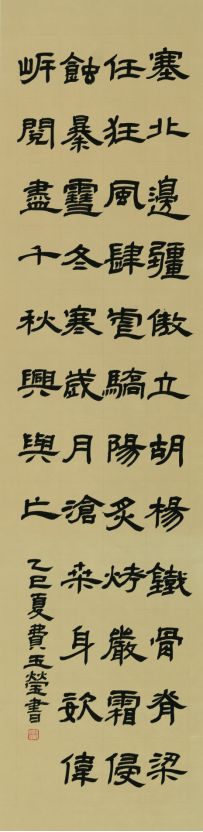 塞北邊疆傲立胡楊鐵骨脊梁
任狂風肆虐驕陽炙烤嚴霜侵
蝕暴雪冬寒歲月滄桒身姿偉
岸閱盡千秋興與亡
乙巳夏費玉瑩書